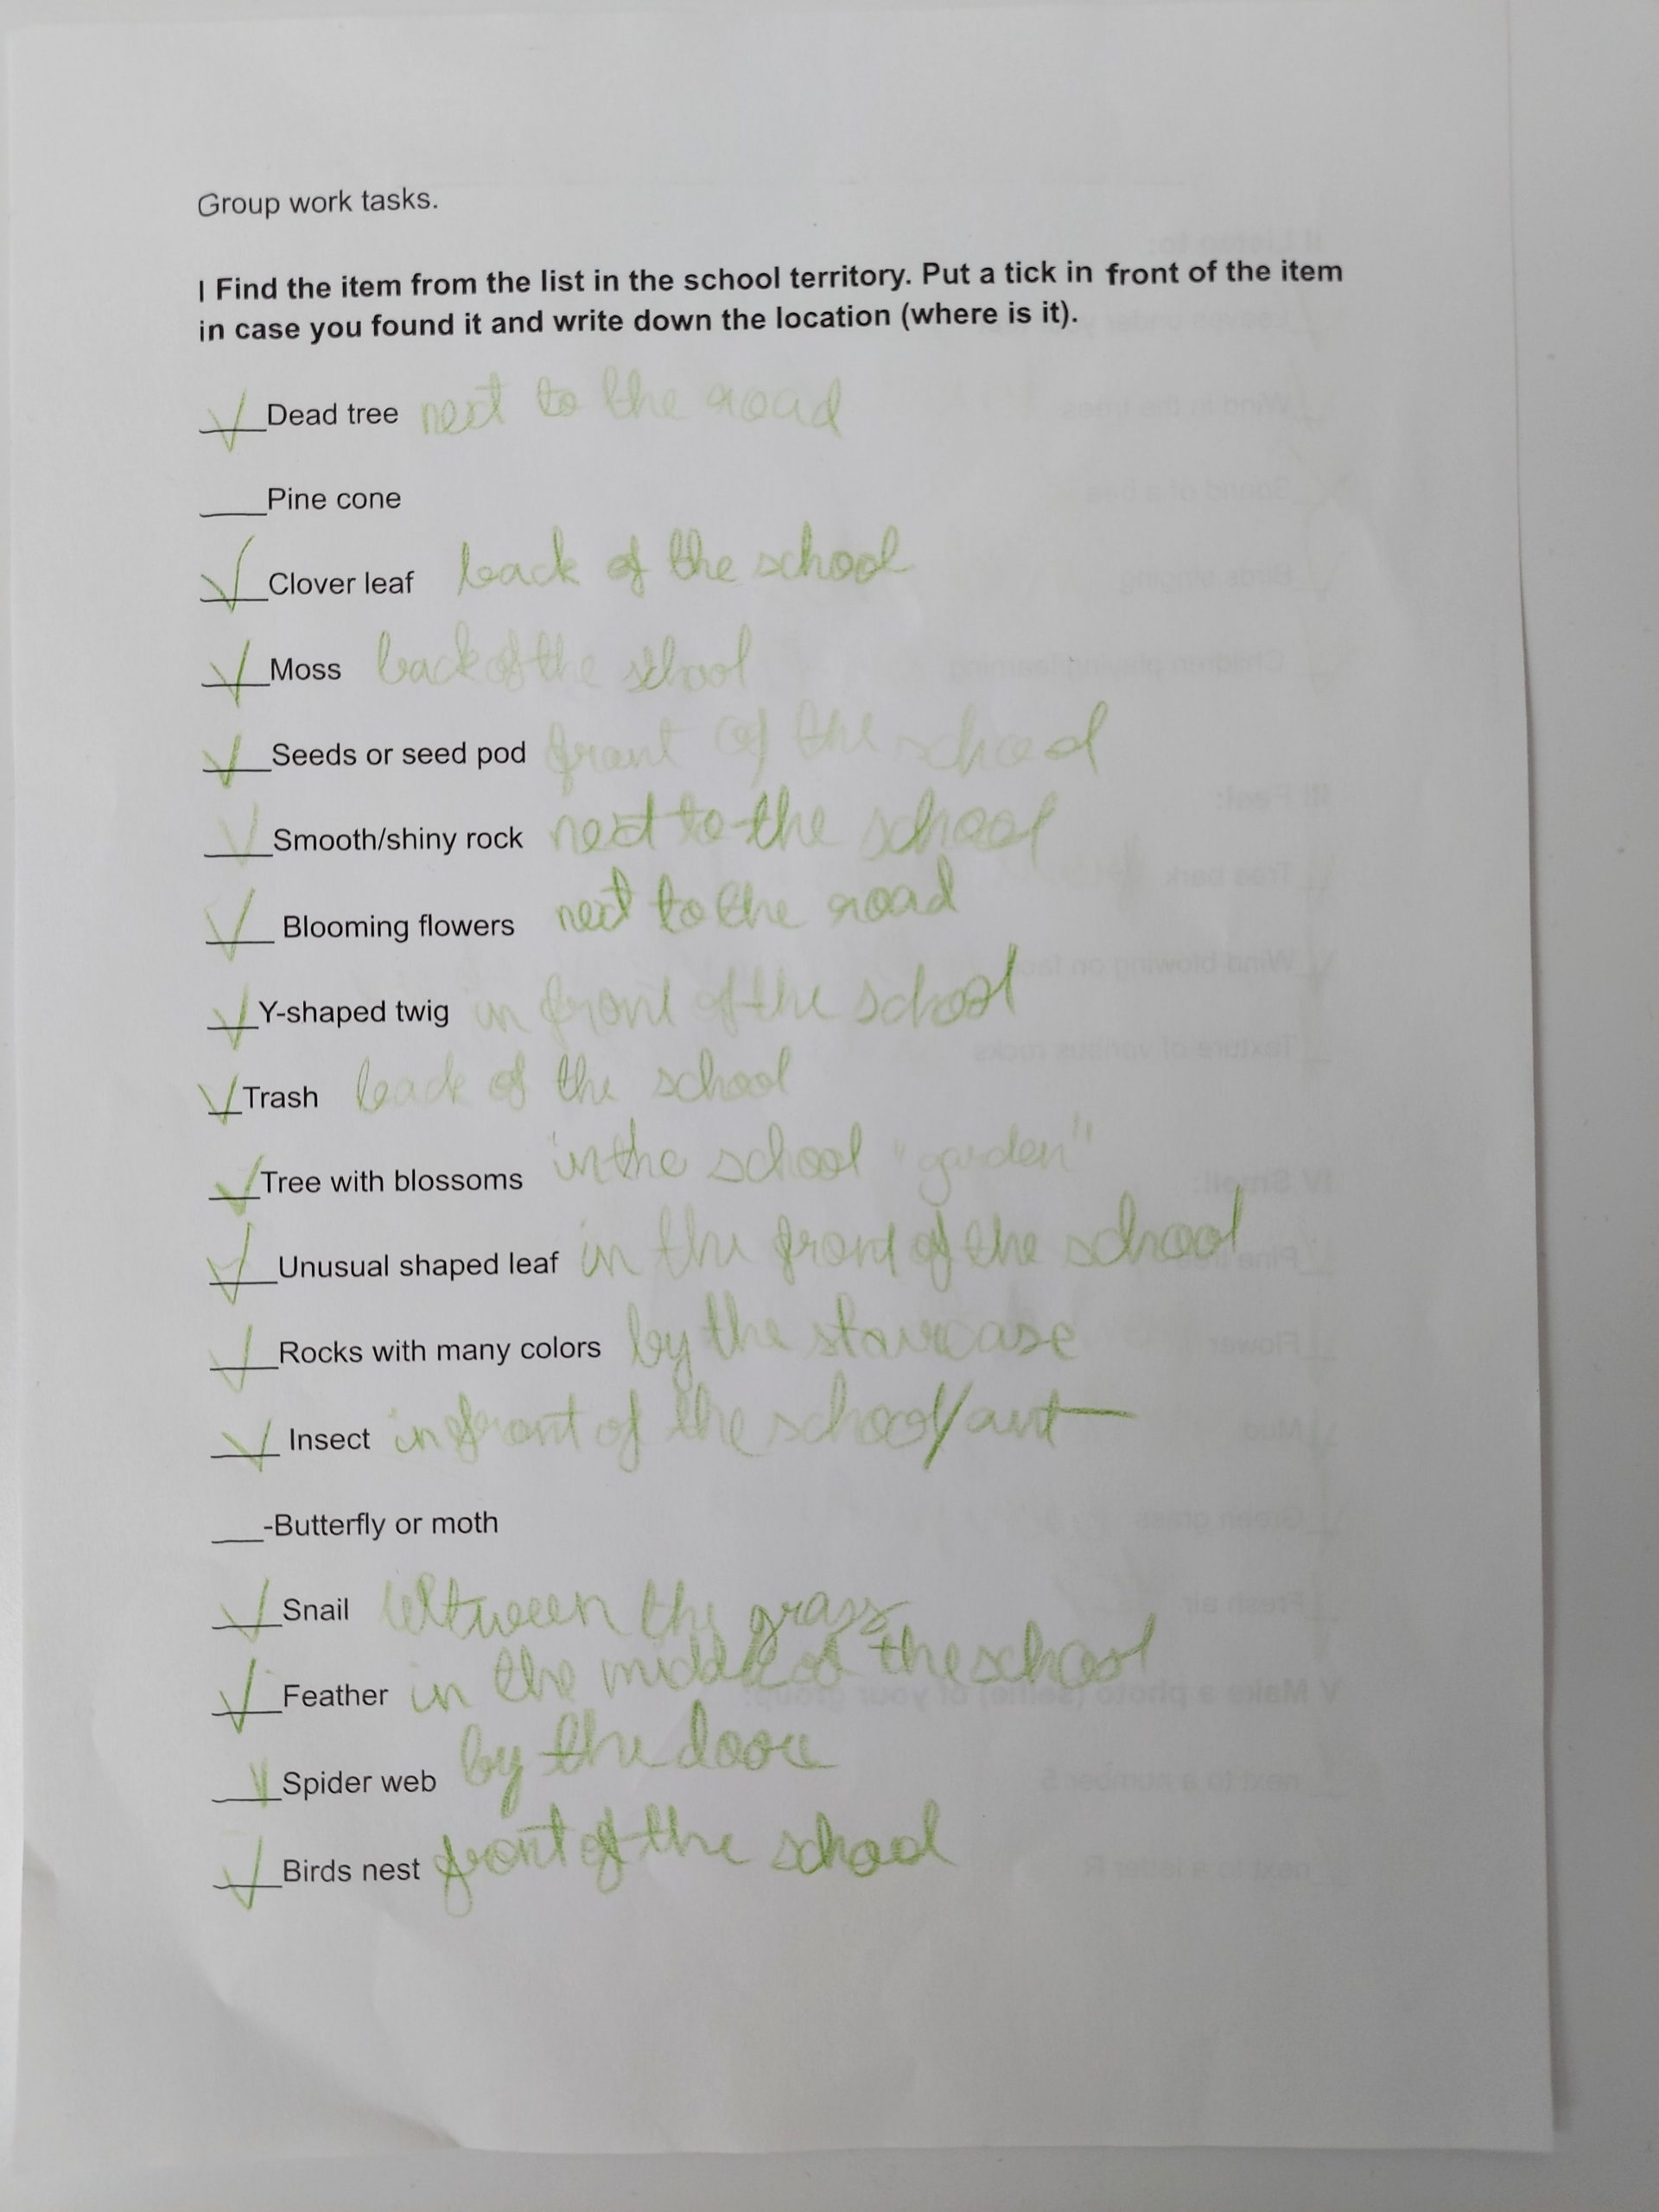 Group work tasks.
I Find the item from the list in the school territory. Put a tick in front of the item
in case you found it and write down the location (where is it).
✓ Dead tree next to the road
___Pine cone
✓ Clover leaf back of the school
✓ Moss back of the school
✓ Seeds or seed pod front of the school
✓ Smooth/shiny rock next to the school
✓ Blooming flowers next to the road
✓ Y-shaped twig in front of the school
✓ Trash back of the school
✓ Tree with blossoms in the school "garden"
✓ Unusual shaped leaf in the front of the school
✓ Rocks with many colors by the staircase
✓ Insect in front of the school/ant
___-Butterfly or moth
✓ Snail between the grass
✓ Feather in the middle of the school
✓ Spider web by the door
✓ Birds nest front of the school